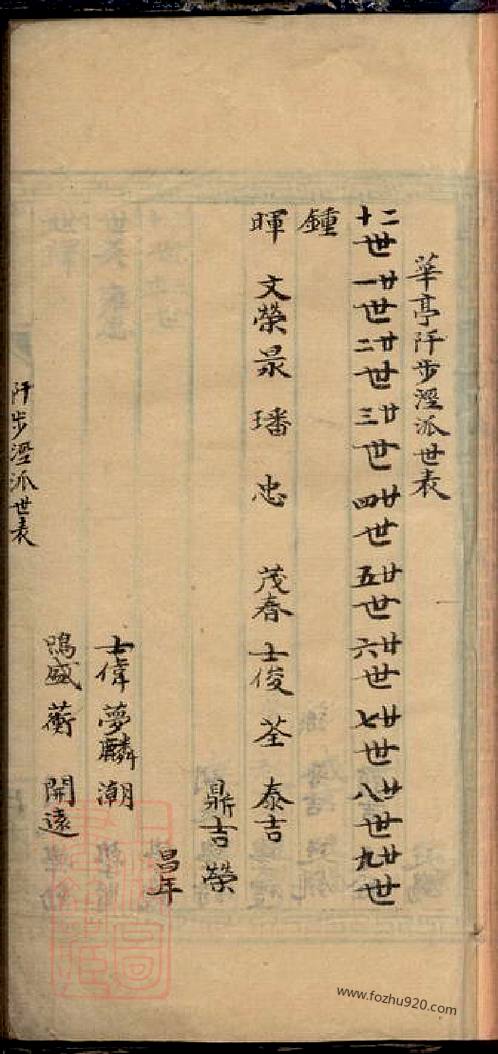 華亭阡步涇派世表
二十世 廿一世 廿二世 廿三世 廿四世 廿五世 廿六世 廿七世 廿八世 廿九世
鍾
暉 文榮 杲 璠 忠 茂春 士俊 荃 泰吉
鼎吉 榮
昌年
士偉 夢麟 潮
鳴盛 蘅 開遠
阡步涇派世表
www.fozhu920.com